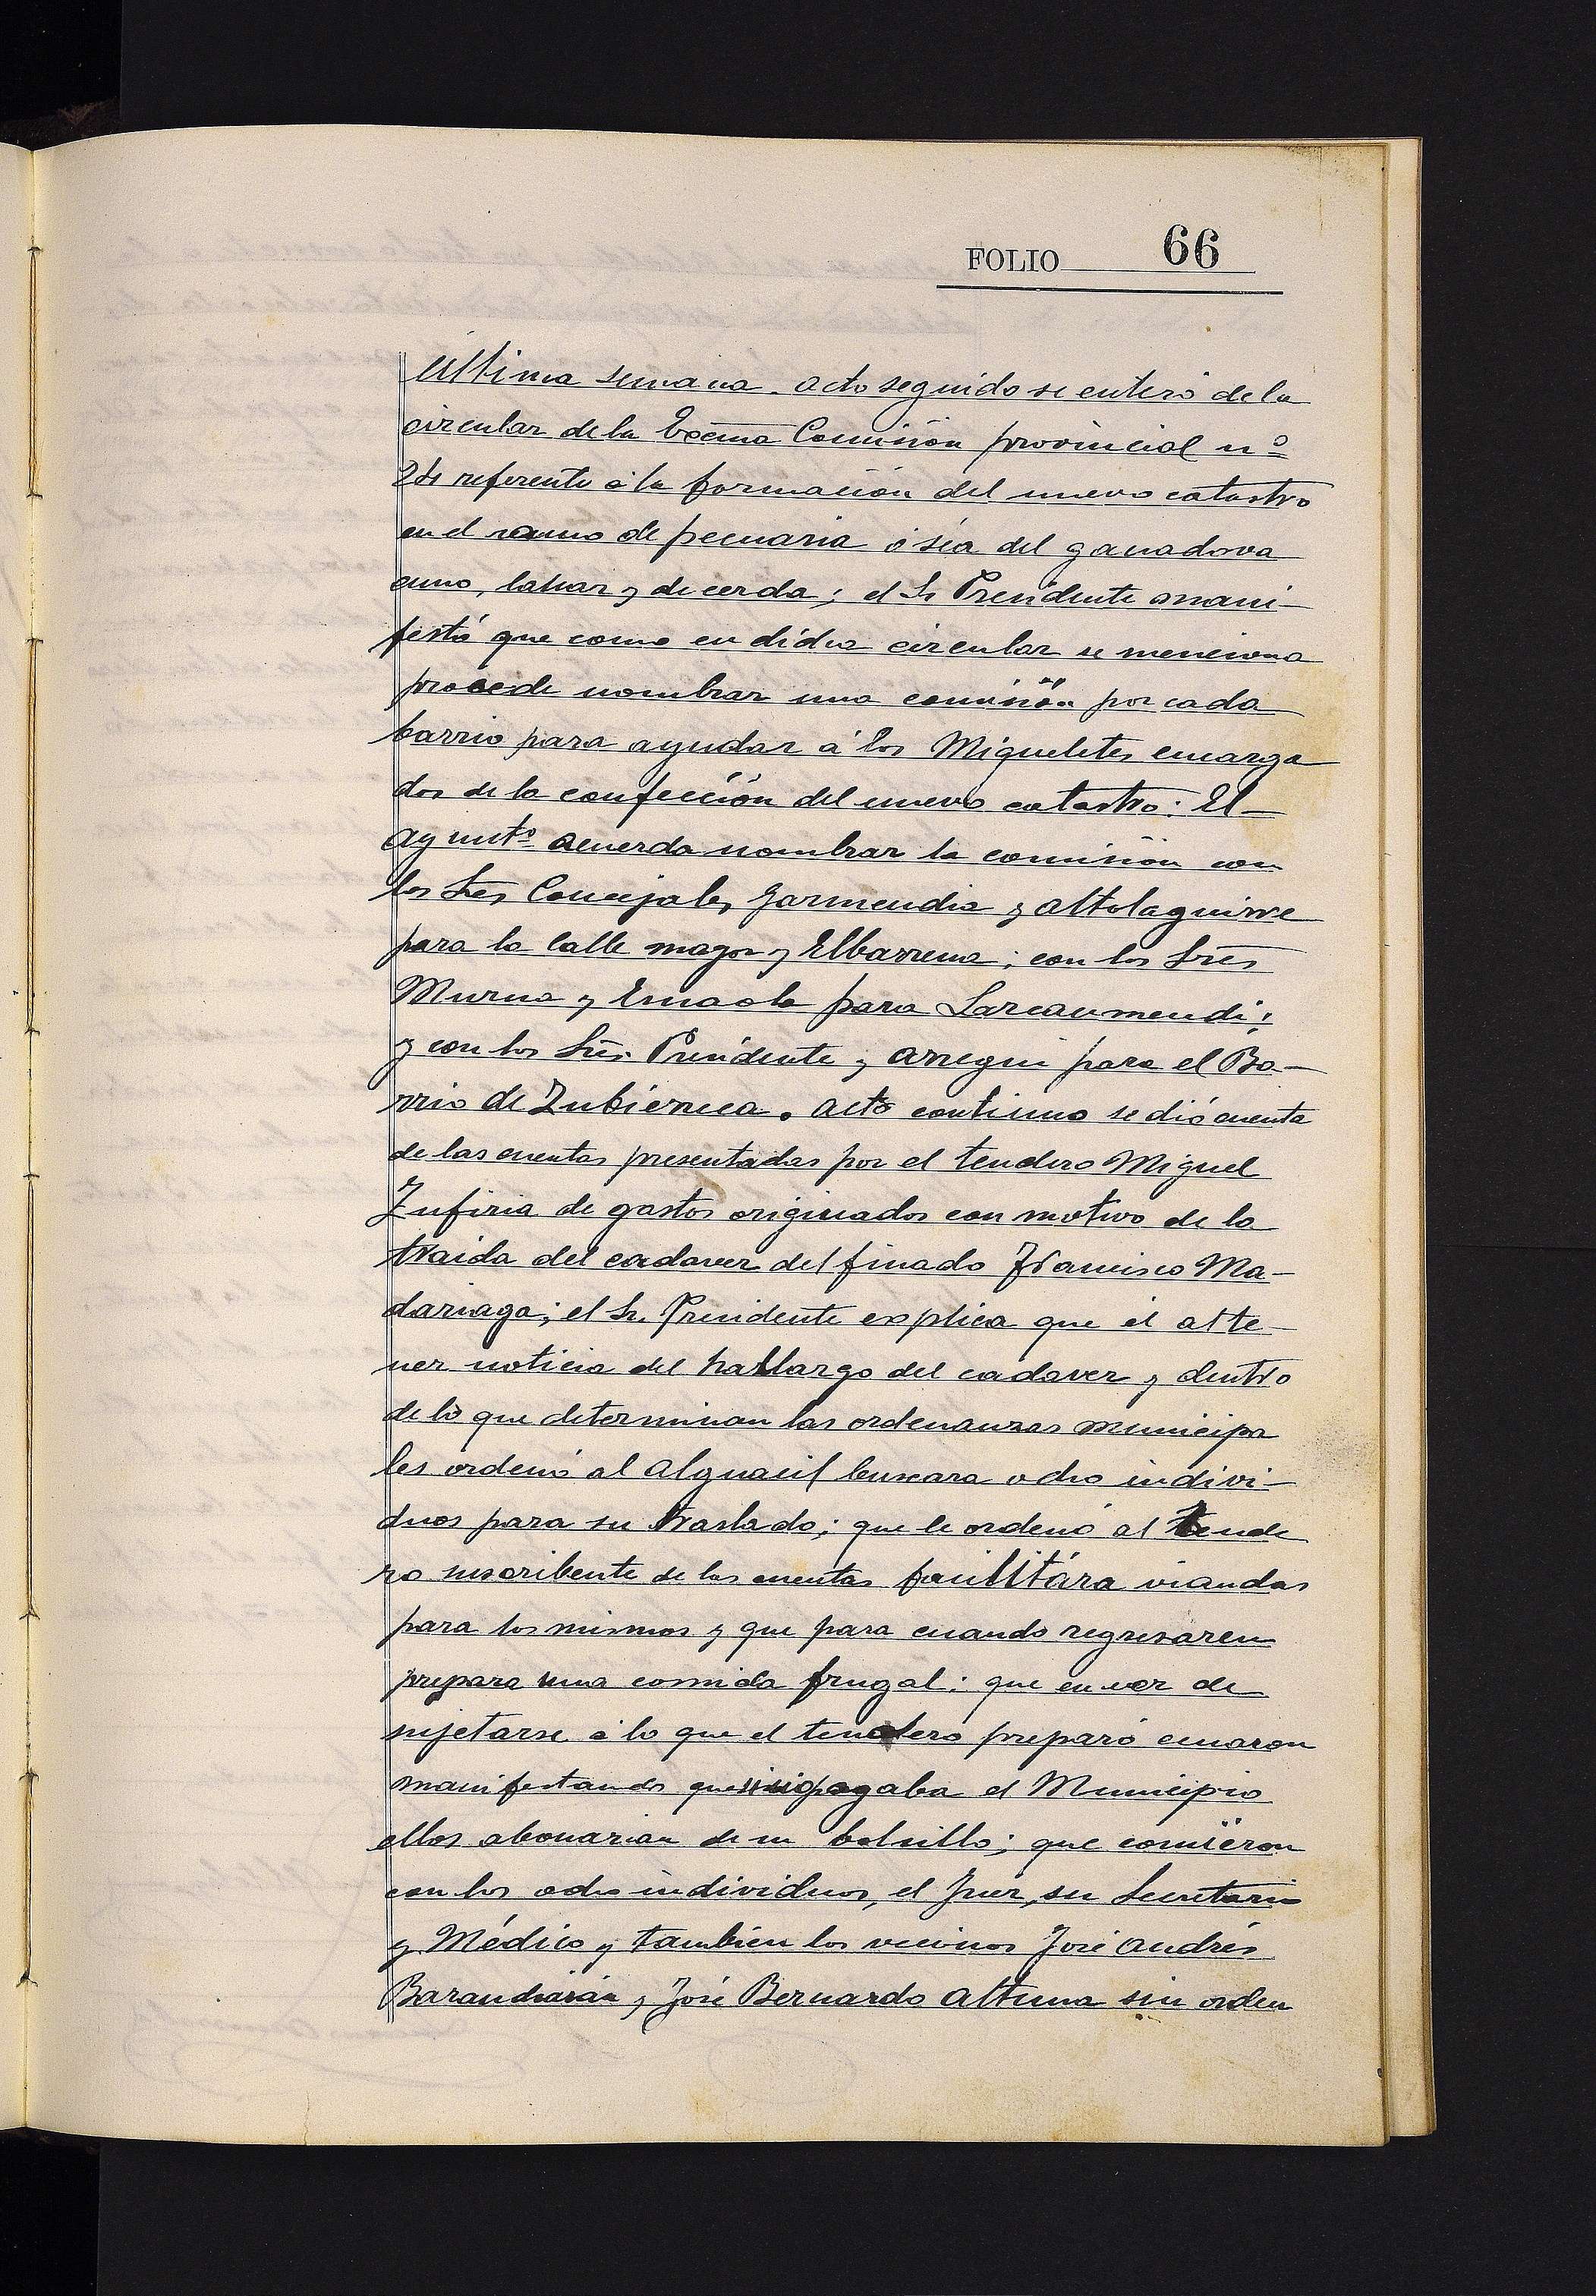 FOLIO 66
última semana. acto seguido se enteró de la
circular de la Excma Comisión provincial nº
24 referente á la formación del nuevo catastro
en el ramo de pecuaria ó séa del ganadova
cuno, lanar y de cerda; el Sr Presidente mani-
festó que como en dicha circular se menciona
procede nombrar una comisión por cada
barrio para ayudar á los Migueletes encarga
dos de la confección del nuevo catastro: El
ayuntº acuerda nombrar la comisión con
los Sres Concejales Garmendia y Altolaguirre
para la Calle mayor y Elbarrena; con los Sres
Murua y Emaola para Larcaumendi;
y con los Sres. Presidente y Arregui para el Ba-
rrio de Zubierreca. acto continuo se dió cuenta
de las cuentas presentadas por el tendero Miguel
Zufiria de gastos originados con motivo de la
traida del cadaver del finado Francisco Ma-
dariaga; el Sr. Presidente explica que él al te-
ner noticia del hallazgo del cadaver y dentro
de lo que determinan las ordenanzas municipa
les ordenó al Alguacil buscara ocho indivi-
duos para su traslado; que le ordenó al tende
ro suscribente de las cuentas facilitára viandas
para los mismos y que para cuando regresáren
prepara una comida frugal: que en vez de
sujetarse á lo que el tendero preparó cenaron
manifestando que si no pagaba el Municipio
ellos abonarian de su bolsillo; que comieron
con los ocho individuos, el Juez, su Secretario
y Médico y tambien los vecinos José Andrés
Barandiarán y José Bernardo Altuna sin orden